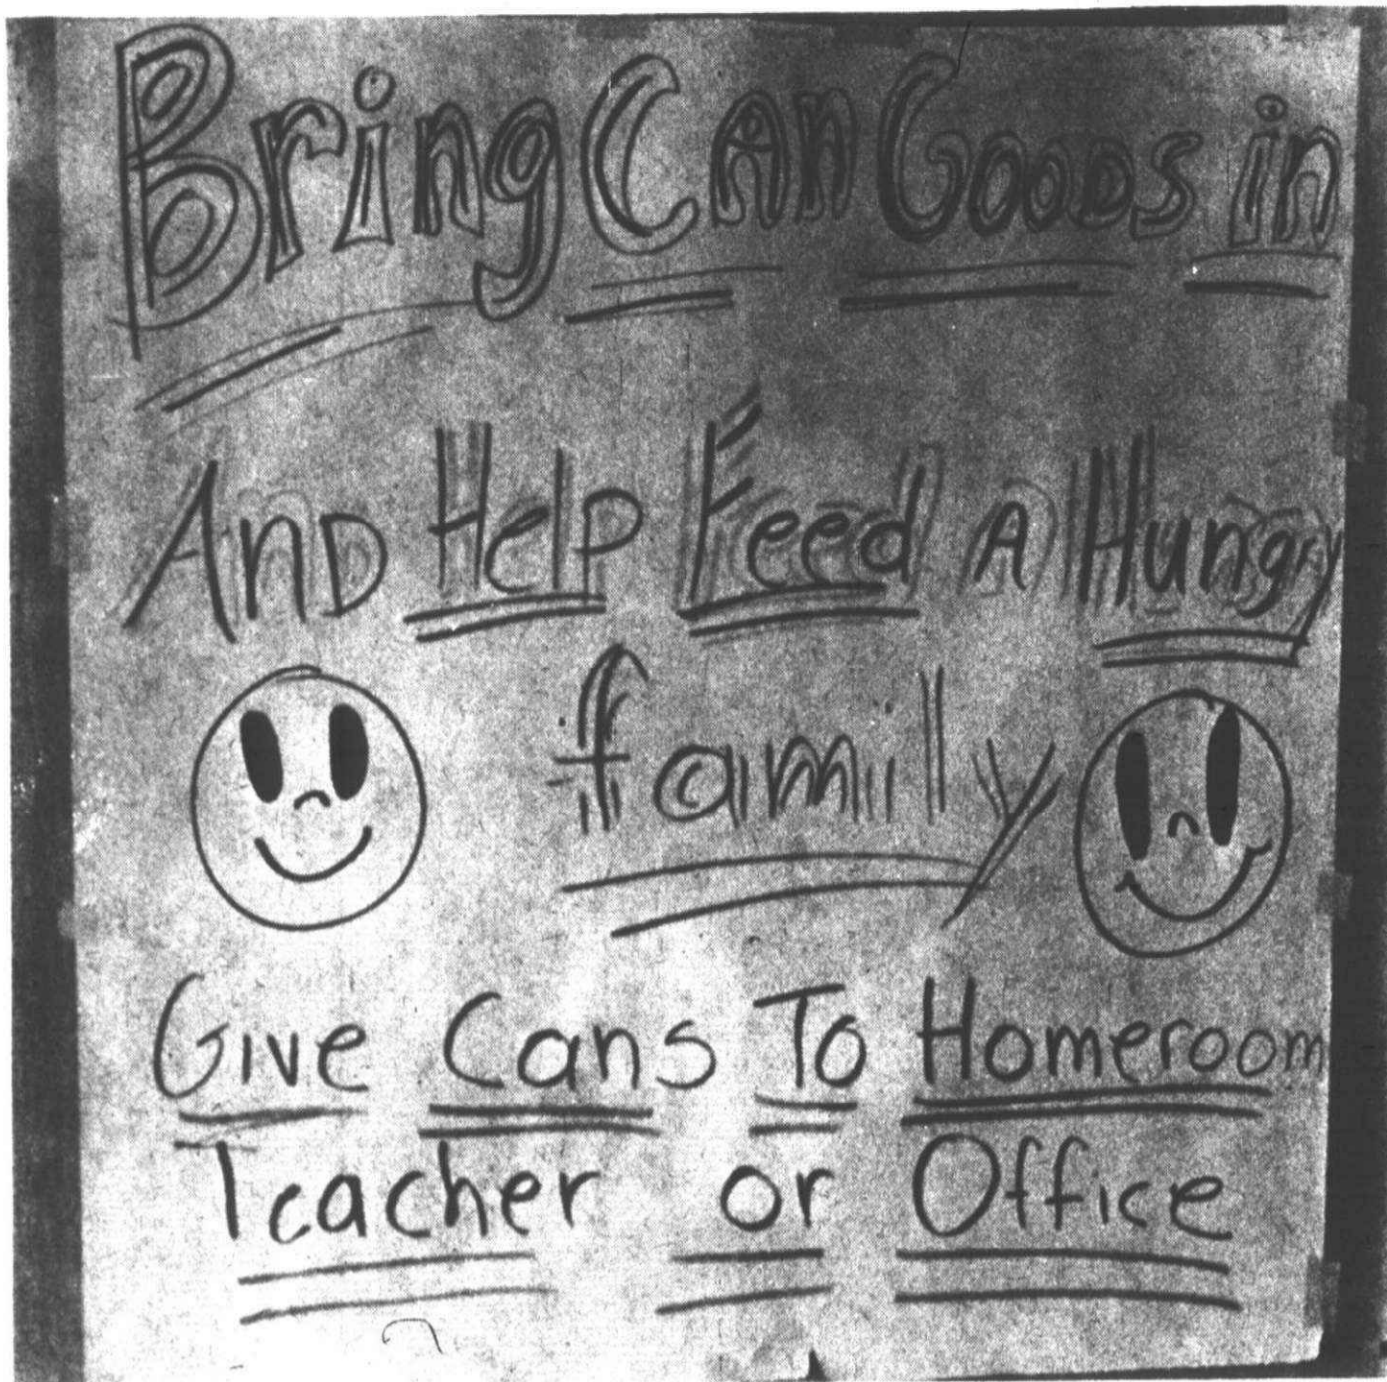 Bring Can Goods in
And Help Feed A Hungry
family
Give Cans To Homeroom
Teacher or Office